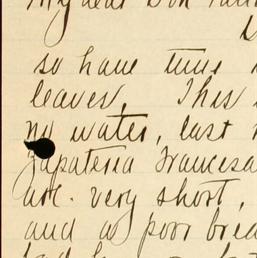 My dear Don
so have time
leaves. This
no water, last
Zapateria Francesa
are very short,
and as poor